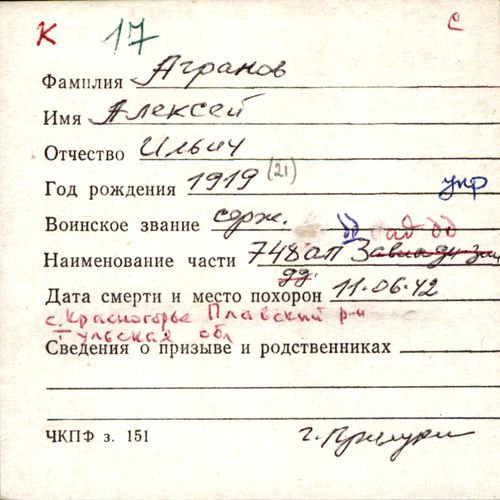 К 17 С
Фамилия Агранов
Имя Алексей
Отчество Ильич
(21)
Год рождения 1919 упр
Воинское звание серж.
ад дд
Наименование части 748 ап 3
дд
Дата смерти и место похорон 11.06.42
с. Красногорье Плавский р-н
Тульская обл
Сведения о призыве и родственниках
ЧКПФ з. 151